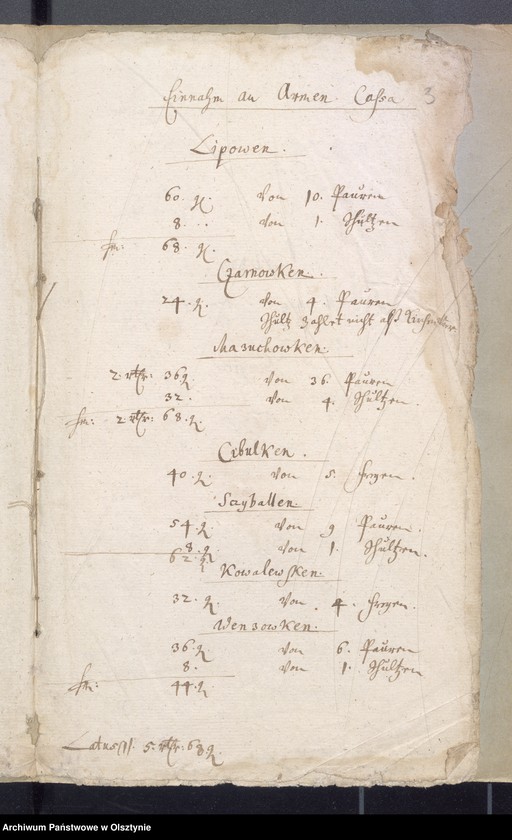 Einnahm an Armen Cassa 3
Lipowen.
60. gl. Von 10. Pauren
8... von 1. Schultzen
sm: 68. gl.
Czarnowken.
24. gl. Von 4. Pauren
Schultz zahlet nicht alß Kirchvater.
Mazuchowken.
2. rthr: 36 gl. von 36. Pauren
32. von 4. Schultzen.
sm: 2 rthr: 68. gl.
Cibulken.
40. gl. von 5. freyen.
Sczyballen.
54. gl. von 9 Pauren.
8. gl. von 1. Schultzen.
62. gl.
Kowalewsken.
32. gl. von 4. freyen.
Wensowken.
36. gl. von 6. Pauren
8. von 1. Schultzen
sm: 44. gl.
Latus 5. rthr: 68 gl.
Archiwum Państwowe w Olsztynie